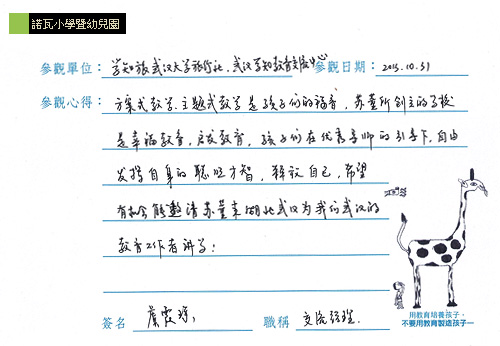 諾瓦小學暨幼兒園
參觀單位：学知旅武汉大学旅行社．武汉学知教育交流中心 參觀日期：2015.10.31
參觀心得：方案式教学．主题式教学是孩子们的福音，苏董所创立的学校
是幸福教育，启发教育，孩子们在优秀导师的引导下，自由
发挥自身的聪明才智，释放自己，希望
有机会能邀请苏董来湖北武汉为我们武汉的
教育工作者讲学！
簽名 職稱 交流经理
用教育培養孩子，
不要用教育製造孩子—